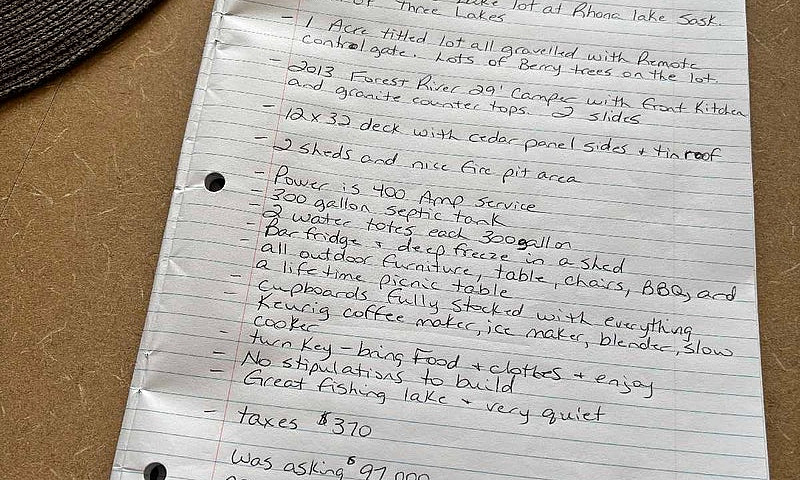 lot at Rhona lake Sask.
Three Lakes
- 1 Acre titled lot all gravelled with Remote
control gate. Lots of Berry trees on the lot.
- 2013 Forest River 29' Camper with front Kitchen
and granite counter tops. 2 slides
- 12x32 deck with cedar panel sides + tin roof
- 2 sheds and nice fire pit area
- Power is 400 Amp service
- 300 gallon septic tank
- 2 water totes each 300 gallon
- Bar fridge + deep freeze in a shed
all outdoor furniture, table, chairs, BBQ, and
a lifetime picnic table
- Cupboards fully stocked with everything
Keurig coffee maker, ice maker, blender, slow
cooker
- turn Key - bring Food + clothes + enjoy
- No stipulations to build
- Great fishing lake + very quiet
- taxes $370
was asking $97,000